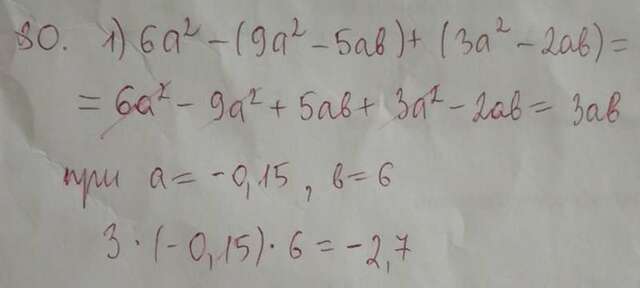 80. 1) 6a² - (9a² - 5ab) + (3a² - 2ab) =
= 6a² - 9a² + 5ab + 3a² - 2ab = 3ab
при a = -0,15, b = 6
3 · (-0,15) · 6 = -2,7